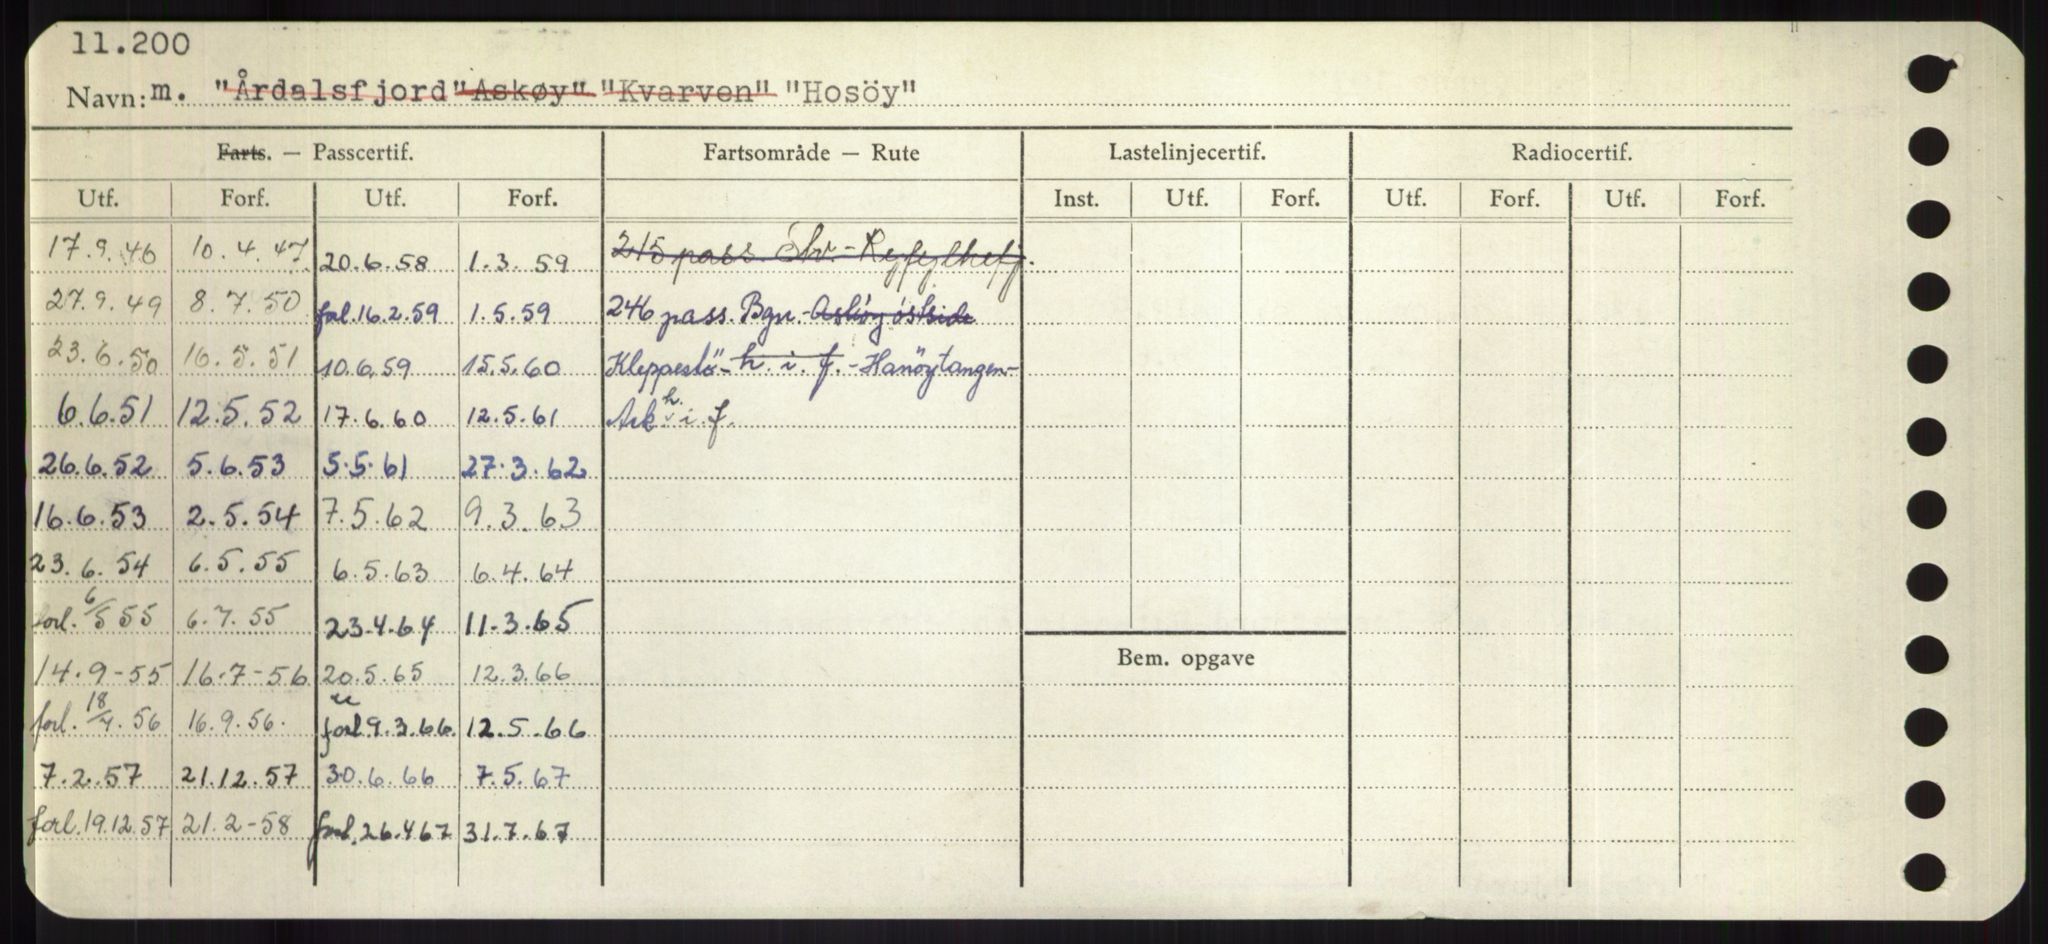 11.200
Navn: m. "Årdalsfjord" "Askøy" "Kvarven" "Hosöy"
Farts. — Passcertif. Fartsområde — Rute Lastelinjecertif. Radiocertif.
Utf. Forf. Utf. Forf. Inst. Utf. Forf. Utf. Forf. Utf. Forf.
17.9.46 10.4.47 20.6.58 1.3.59 215 pass. - Ryfylkefj.
27.9.49 8.7.50 forl.16.2.59 1.5.59 246 pass. Bgn.-Asköy östside
23.6.50 16.5.51 10.6.59 15.5.60 Kleppestö-h.i.f.-Hanöytangen-
6.6.51 12.5.52 17.6.60 12.5.61 Ask h.i.f.
26.6.52 5.6.53 5.5.61 27.3.62
16.6.53 2.5.54 7.5.62 9.3.63
23.6.54 6.5.55 6.5.63 6.4.64
forl. 6/5 55 6.7.55 23.4.64 11.3.65
14.9-55 16.7-56 20.5.65 12.3.66
forl. 18/4.56 16.9.56. forl 9.3.66. 12.5.66
7.2.57 21.12.57 30.6.66 7.5.67
forl.19.12.57 21.2-58 forl.26.4.67 31.7.67
Bem. opgave